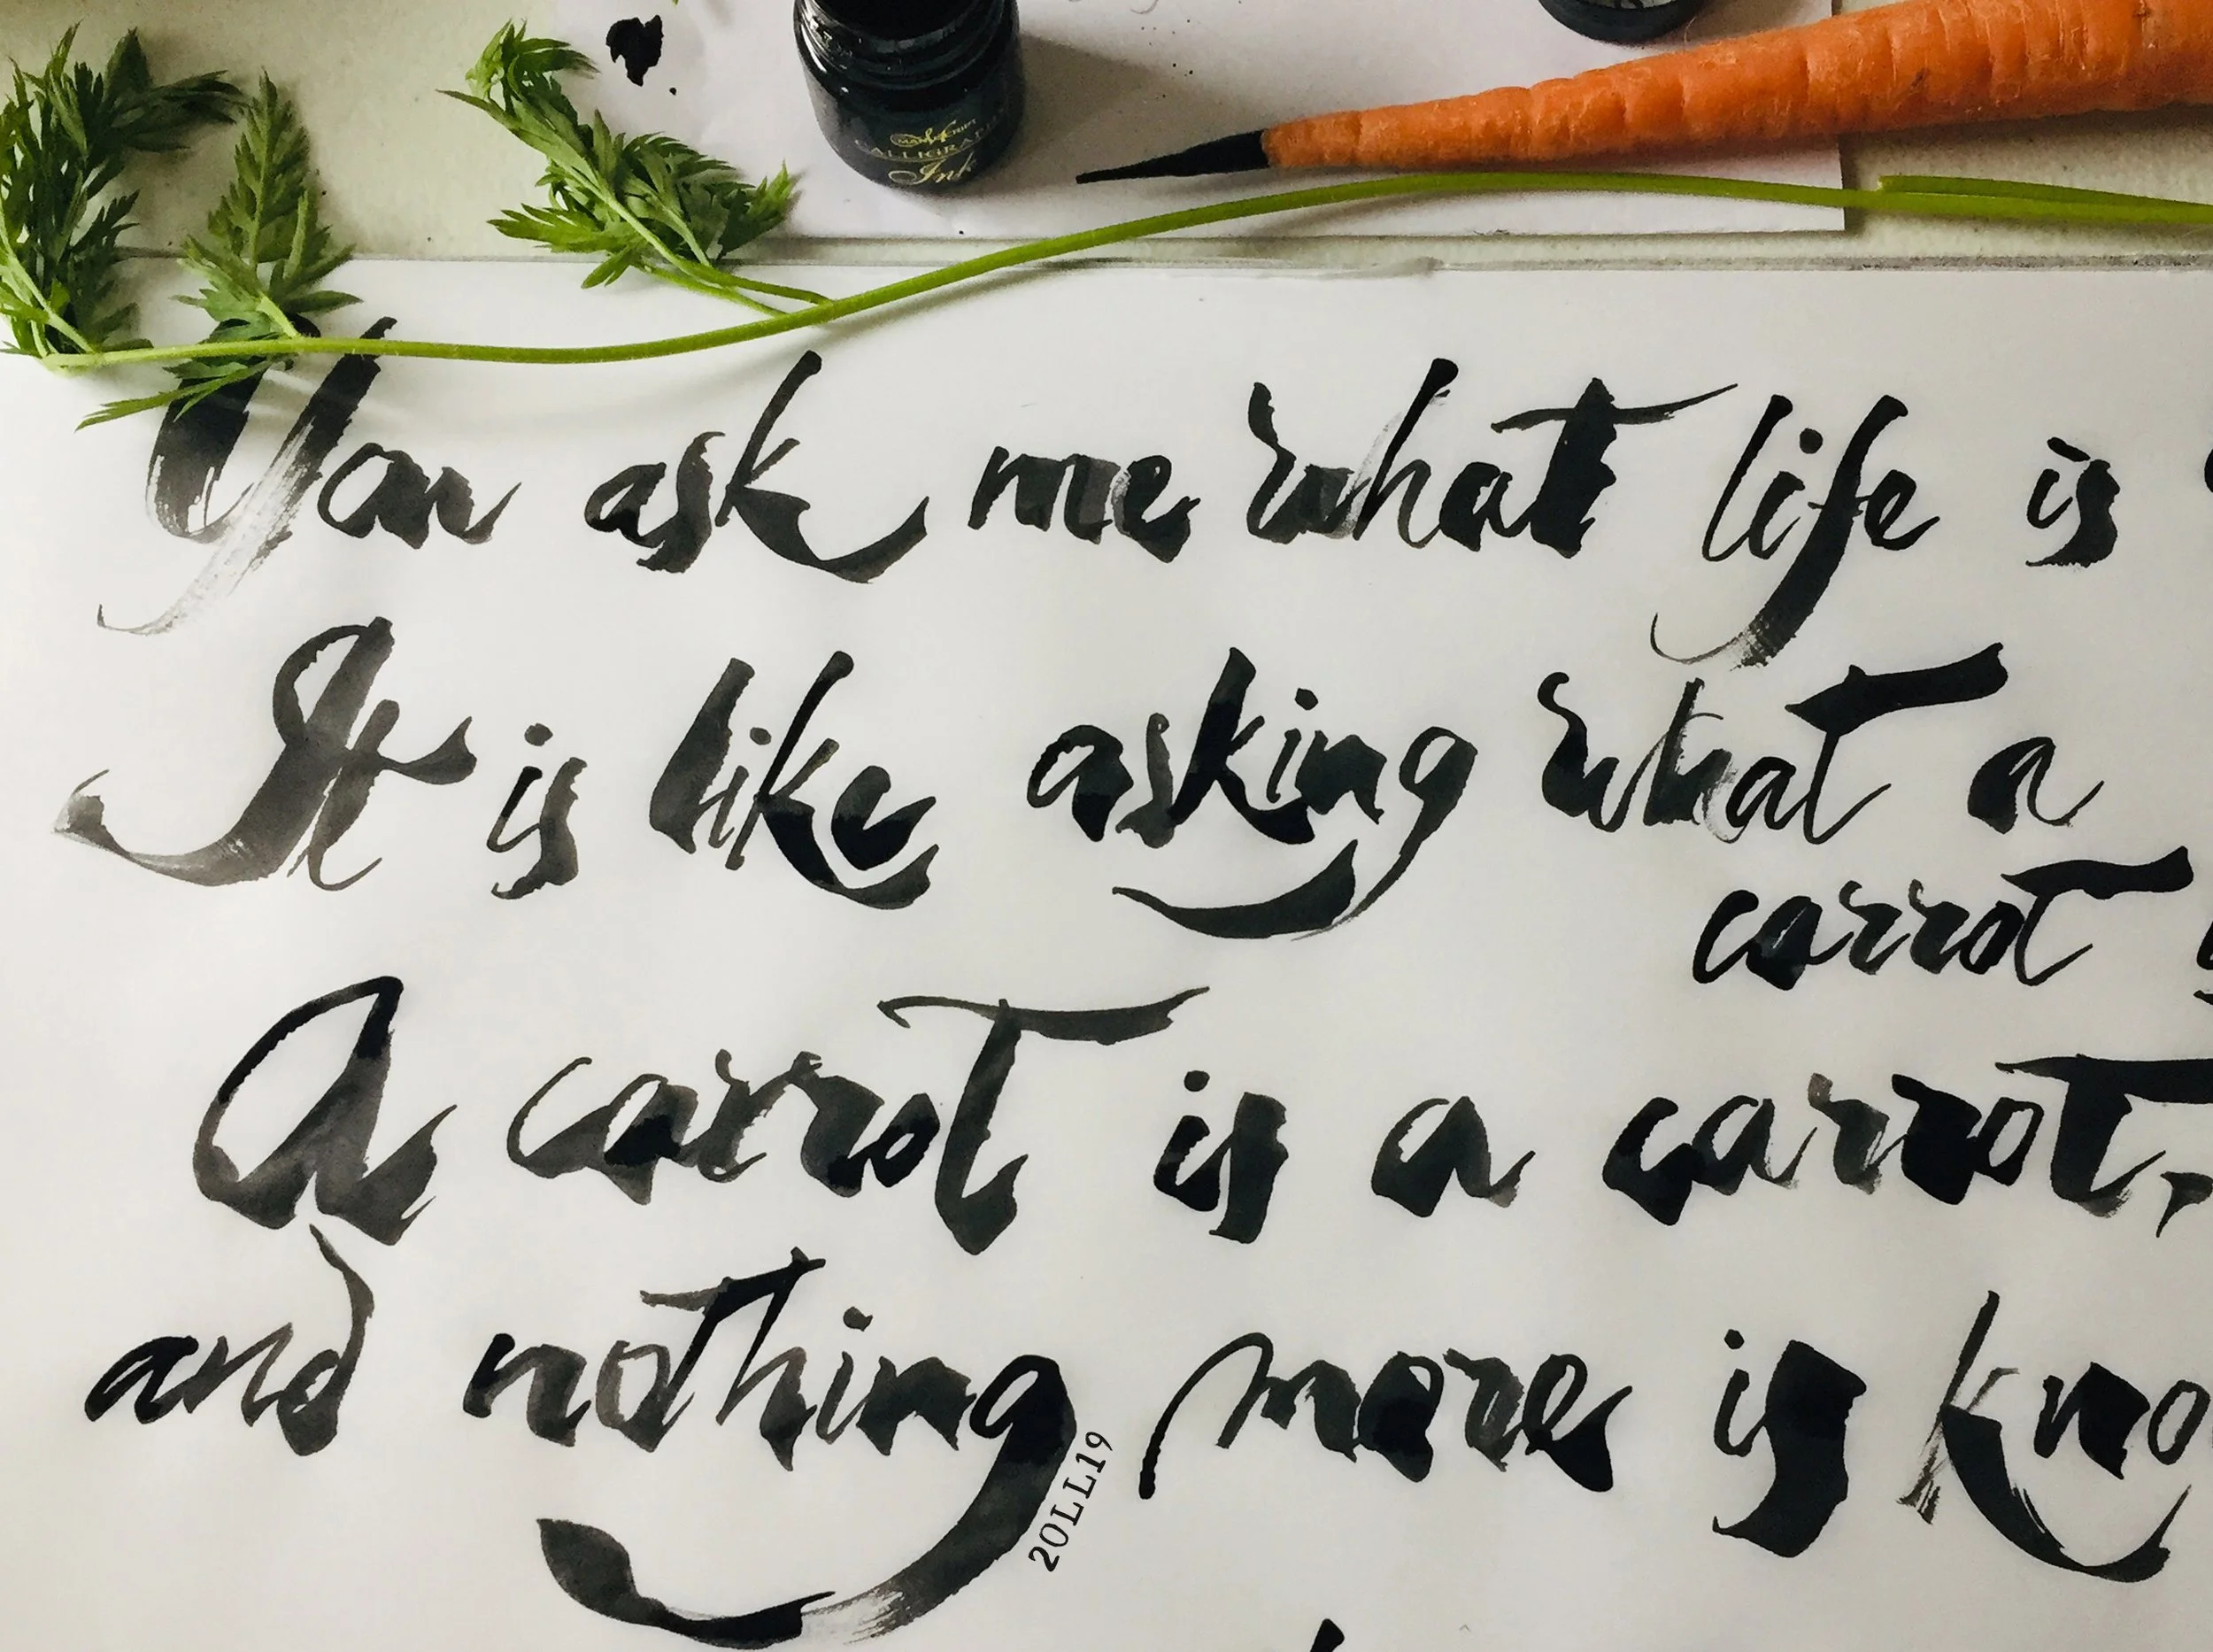 MANUSCRIPT
CALLIGRAPHY
Ink
You ask me what life is
It is like asking what a
carrot
A carrot is a carrot,
and nothing more is kno
20LL19